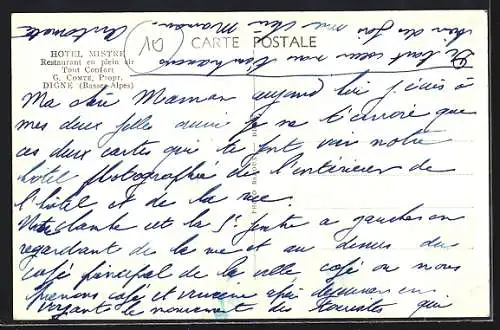 HOTEL MISTRE
Restaurant en plein air
Tout Confort
G. COMTE, Propr.
DIGNE (Basses-Alpes)
CARTE POSTALE
De tout cœur nous t'embrassons
bien des fois ma chère Maman
Antoinette
Ma chère Maman aujourd'hui j'écris à
mes deux filles aussi je ne t'envoie que
ces deux cartes qui te font voir notre
hotel photographié de l'intérieur de
l'hotel et de la rue.
Notre chambre est la 5e fenêtre à gauche en
regardant de la rue et au dessus du
café principal de la ville, café ou nous
prenons café et verveine après déjeuner en
voyant le mouvement des touristes qui